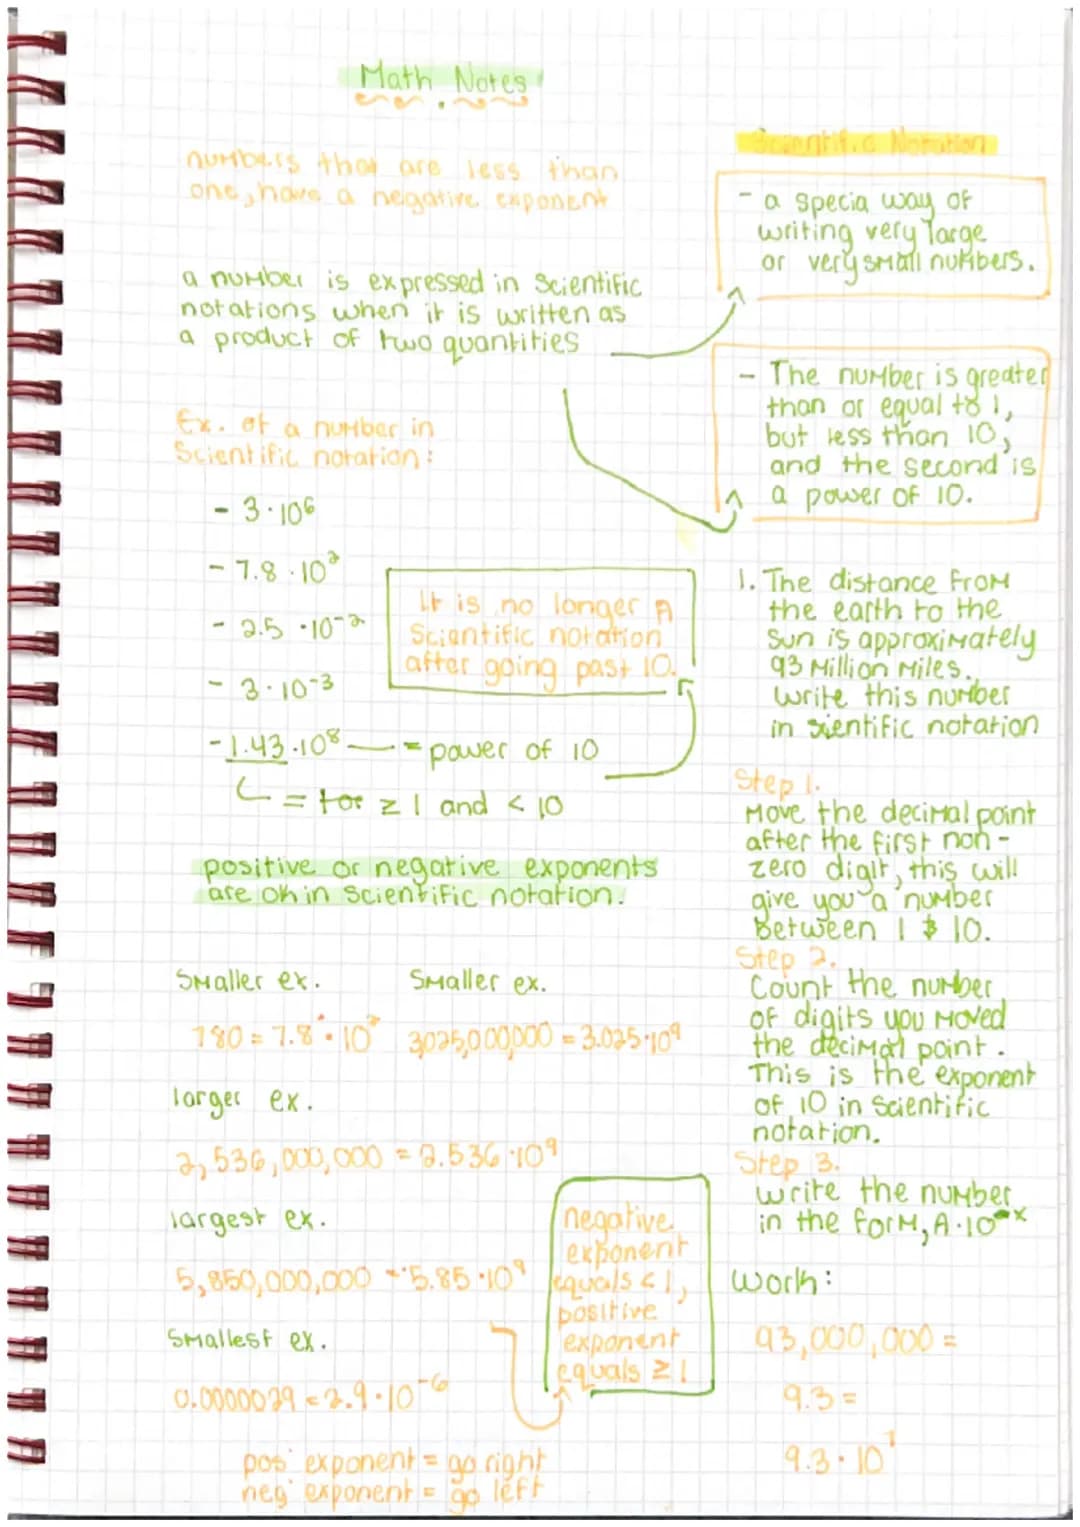 Math Notes
numbers that are less than
one, have a negative exponent
a number is expressed in Scientific
notations when it is written as
a product of two quantities
Ex. of a number in
Scientific notation:
- 3·10⁶
- 7.8·10²
- 2.5·10⁻²
- 3·10⁻³
- 1.43·10⁸ = power of 10
= for ≥ 1 and < 10
It is no longer A
Scientific notation
after going past 10.
positive or negative exponents
are ok in Scientific notation.
Smaller ex.
780 = 7.8·10²
Smaller ex.
3,025,000,000 = 3.025·10⁹
larger ex.
2,536,000,000 = 2.536·10⁹
largest ex.
5,850,000,000 = 5.85·10⁹
Smallest ex.
0.0000029 = 2.9·10⁻⁶
negative
exponent
equals < 1,
positive
exponent
equals ≥ 1
pos exponent = go right
neg exponent = go left
Scientific Notation
- a specia way of
writing very large
or very small numbers.
- The number is greater
than or equal to 1,
but less than 10,
and the second is
a power of 10.
1. The distance from
the earth to the
sun is approximately
93 Million Miles.
Write this number
in scientific notation
Step 1.
Move the decimal point
after the first non-
zero digit, this will
give you a number
between 1 & 10.
Step 2.
Count the number
of digits you moved
the decimal point.
This is the exponent
of 10 in Scientific
notation.
Step 3.
Write the number
in the form, A·10ˣ
Work:
93,000,000 =
9.3 =
9.3·10⁷